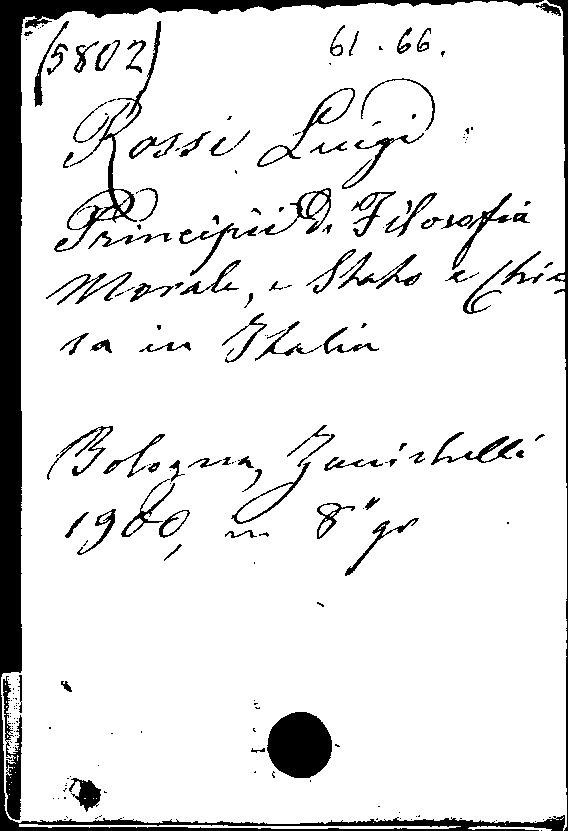 (5802) 61.66.
Rossi Luigi
Principii di Filosofia
Morale, e Stato e Chie-
sa in Italia
Bologna, Zanichelli
1900, in 8° gr